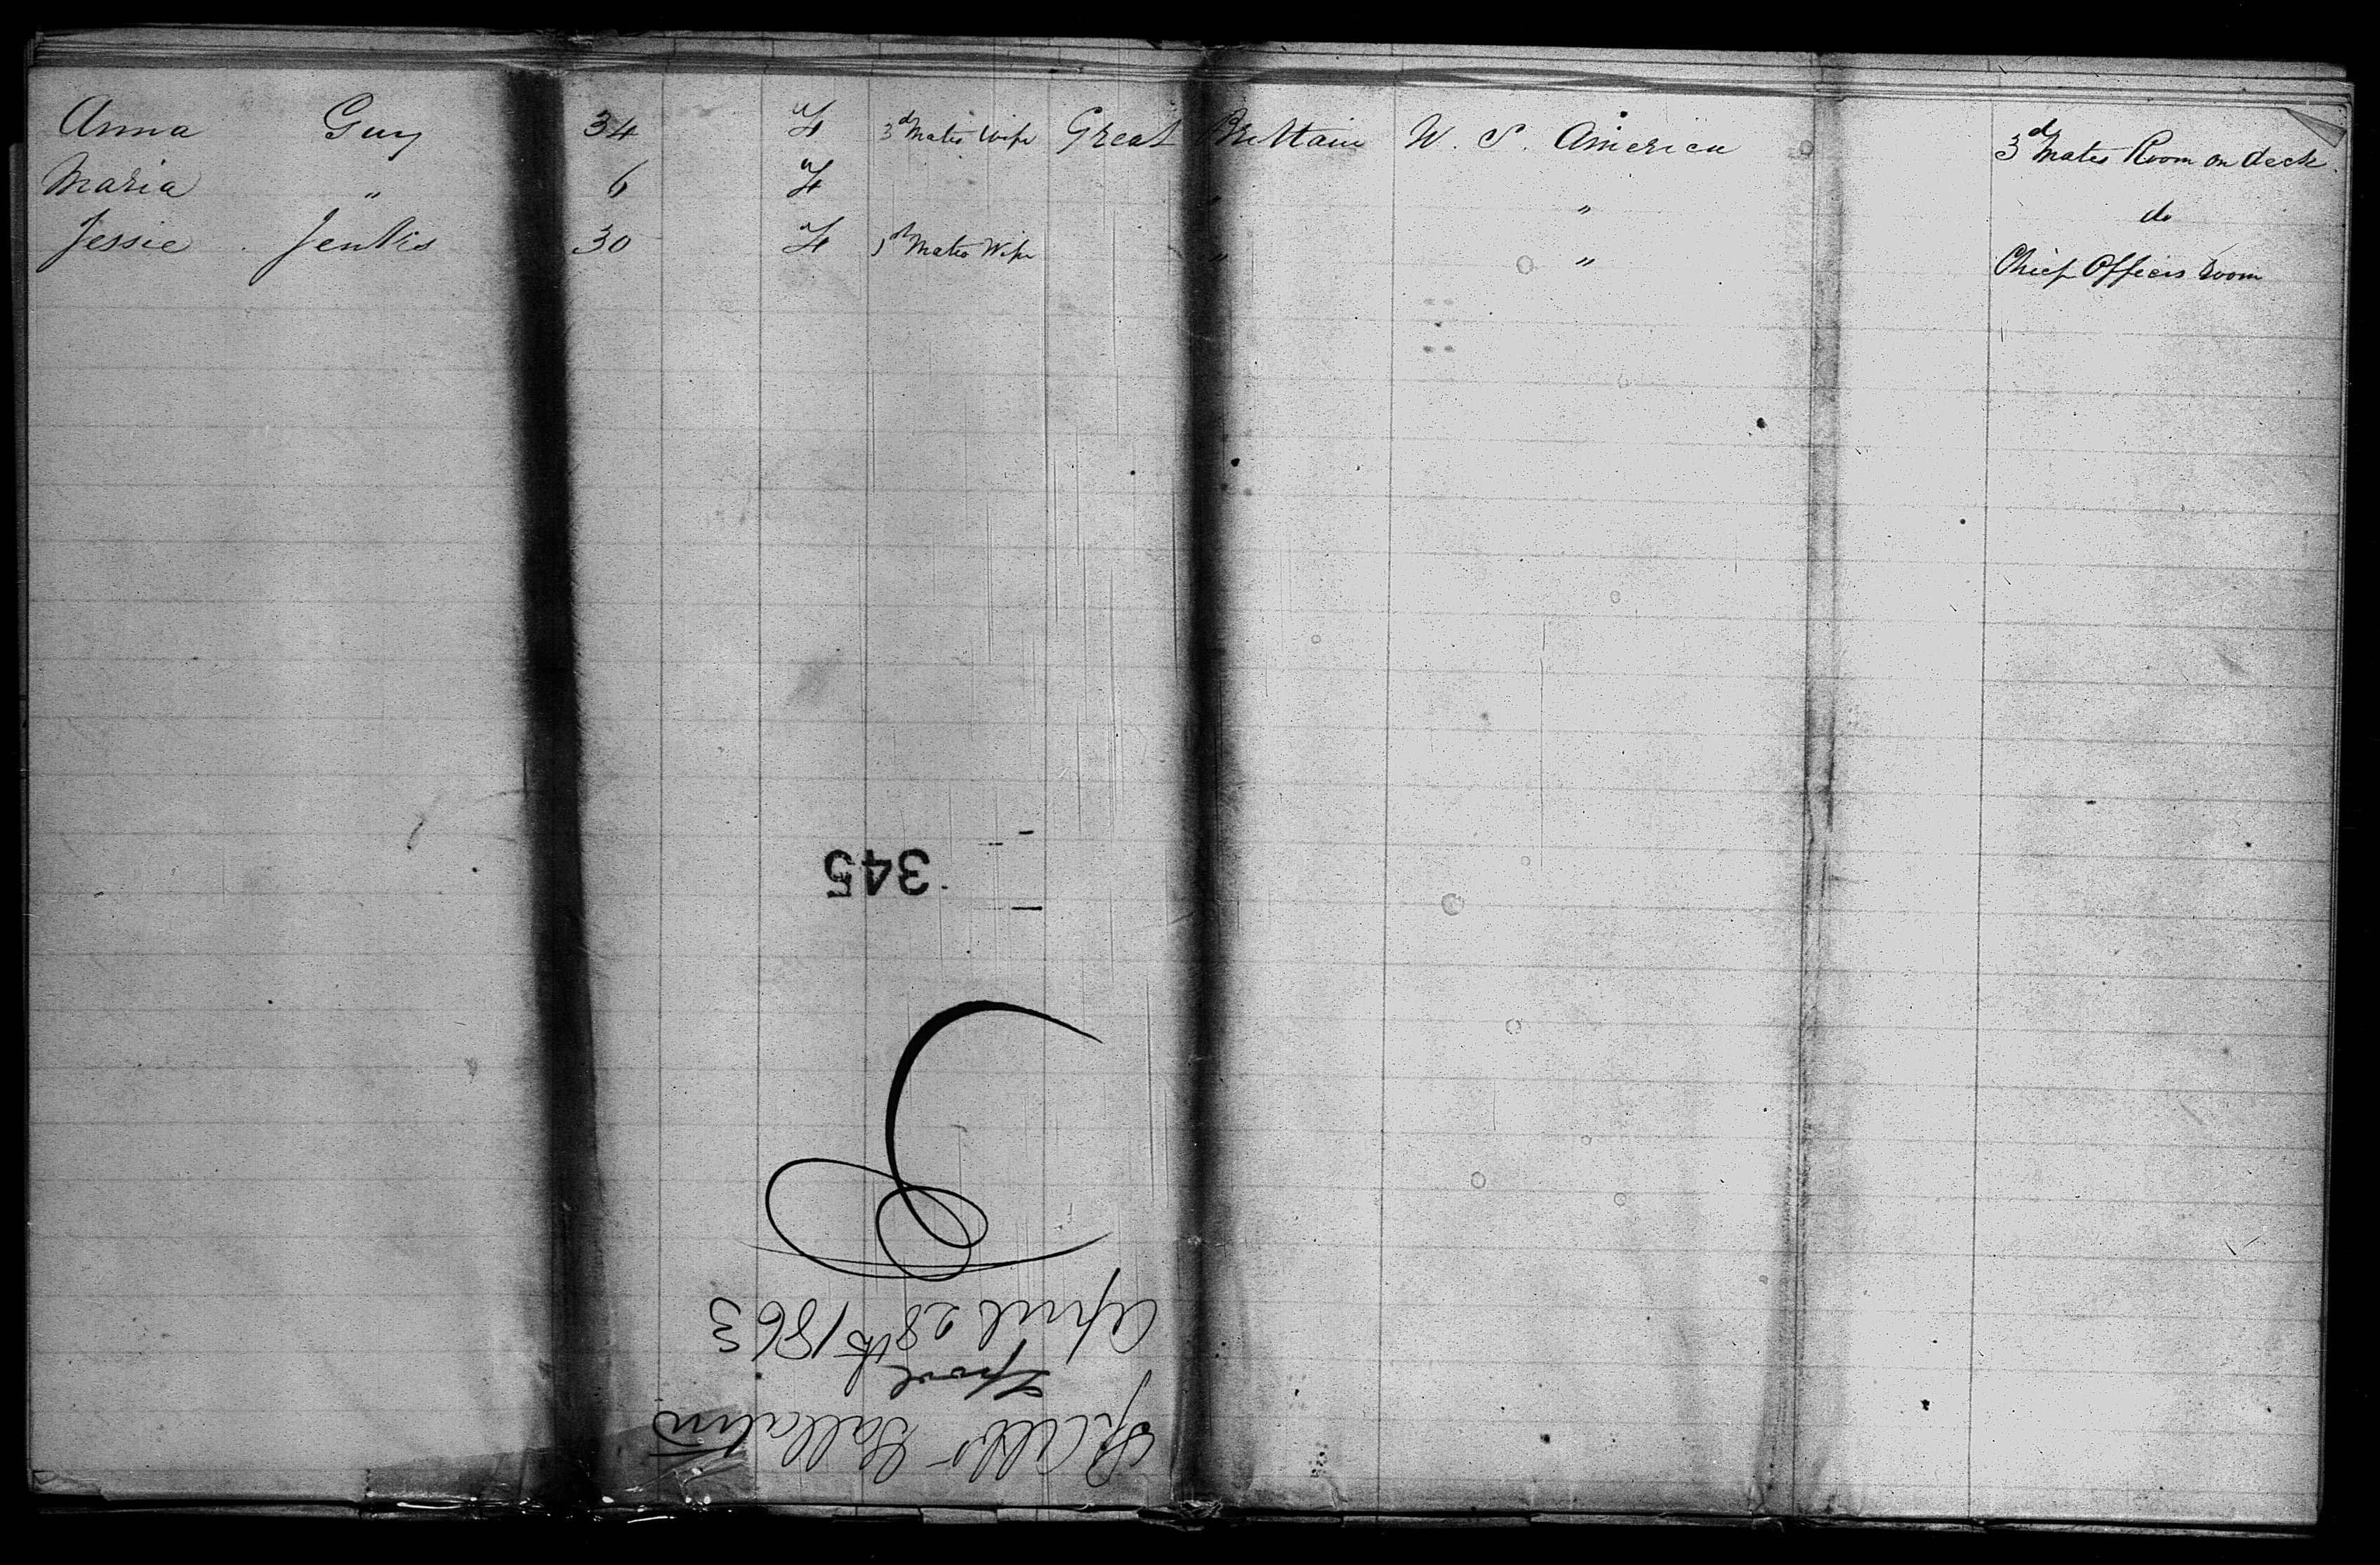 Anna Guy 34 F 3d Mates Wife Great Brittain U. S. America 3d Mates Room on deck
Maria " 6 F " " do
Jessie Jenkes 30 F 1st Mates Wife " " Chief Officers Room
345
April 28th 1863
Lpool
Sp. Albt Gallatin